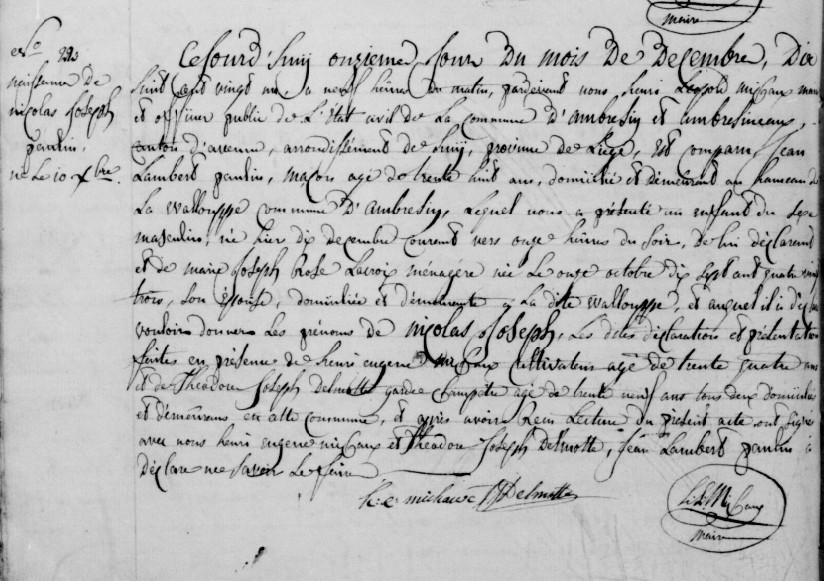 maire
N.o
naissance de
nicolas Joseph
paulin,
né Le 10 Xbre.
Cejourd'huy onzieme Jour Du mois De Decembre, Dix
huit Cent vingt a neuf heures du matin, pardevant nous henri Leopold michaux maire
et officier public de L'Etat civil de La Commune D'ambresin et ambresineaux,
Canton d'avenne, arrondissement de huy, province de Liege, Est comparu Jean
Lambert paulin, maçon agé de trente huit ans, domicilié et demeurant au hameau de
La Wallouppe commune D'ambresin, Lequel nous a présenté un enfant du sexe
masculin, né hier dix decembre Courent vers onze heures du soir, de lui déclarent
et de marie Joseph Rose Lacroix ménagère née Le onze octobre dix sept cent quatre vingt
trois, son épouse, domiciliée et démeurante a La dite Wallouppe, et auquel il a déclaré
vouloir donner Les prénoms de Nicolas Joseph, Les dites déclaration et présentation
faites en présence de henri eugene michaux Cultivateur agé de trente quatre ans
et de Théodore Joseph Delmotte garde Champêtre agé de trente neuf ans tous deux domiciliés
et démeurans en cette commune, et après avoir Rendu Lecture Du présent acte ont signé
avec nous henri eugene michaux et Théodore Joseph Delmotte, Jean Lambert paulin a
déclaré ne Savoir Le faire
h: e michaux Delmotte
h: L: Michaux
maire